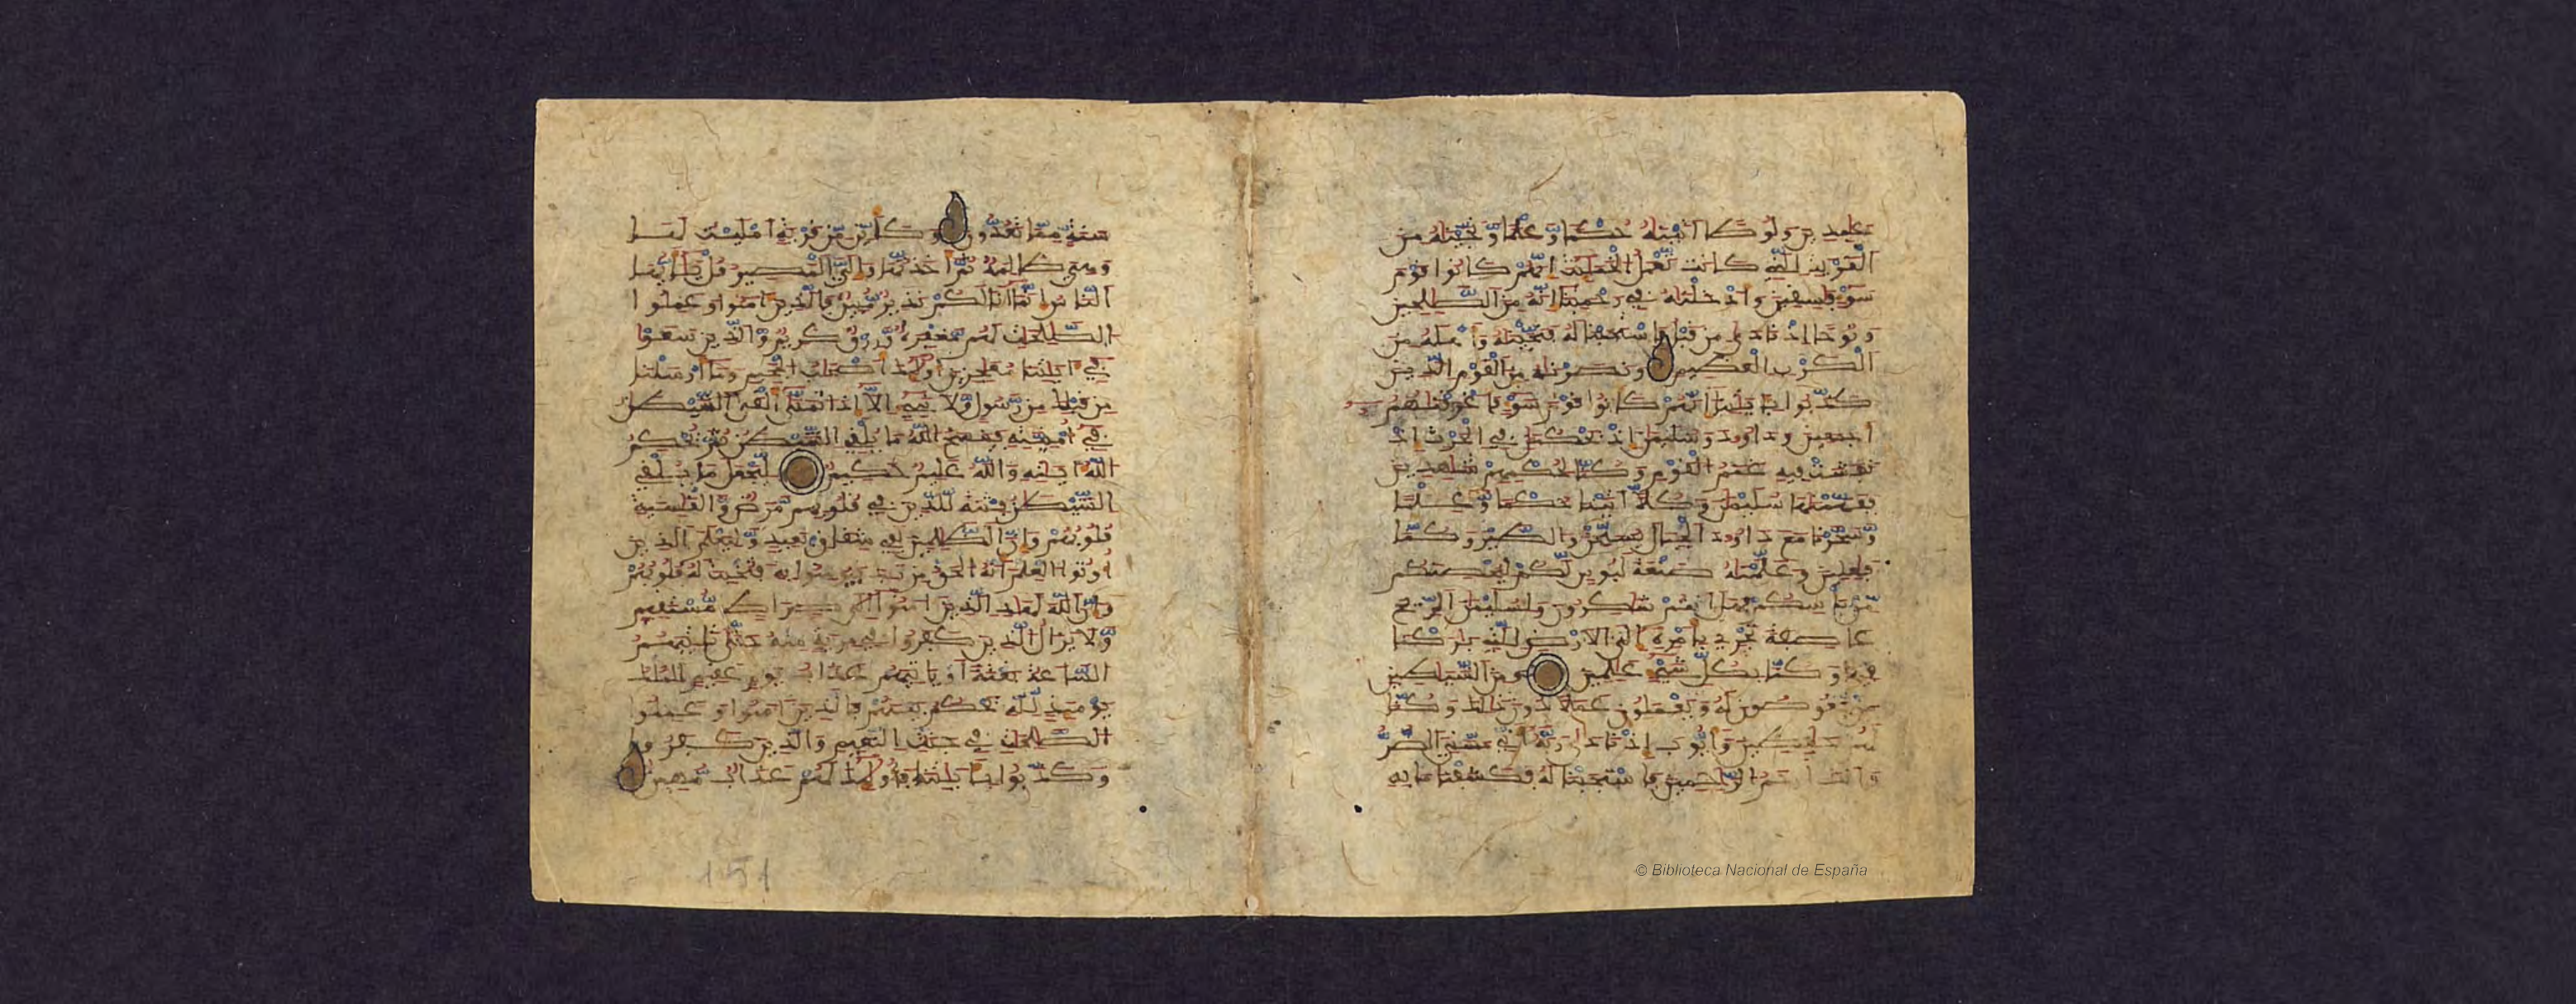 عٰبِدِينَ وَلُوطًا اٰتَيْنَٰهُ حُكْمًا وَعِلْمًا وَنَجَّيْنَٰهُ مِنَ
اَلْقَرْيَةِ اِلتِي كَانَت تَّعْمَلُ اُلْخَبَٰٓئِثَ إِنَّهُمْ كَانُوا قَوْمَ
سَوْءٍ فَٰسِقِينَ وَأَدْخَلْنَٰهُ فِي رَحْمَتِنَا إِنَّهُ مِنَ اَلصَّٰلِحِينَ
وَنُوحًا إِذْ نَادَىٰ مِن قَبْلُ فَاسْتَجَبْنَا لَهُ فَنَجَّيْنَٰهُ وَأَهْلَهُ مِنَ
اَلْكَرْبِ اِلْعَظِيمِ وَنَصَرْنَٰهُ مِنَ اَلْقَوْمِ اِلذِينَ
كَذَّبُوا بِـَٔايَٰتِنَا إِنَّهُمْ كَانُوا قَوْمَ سَوْءٍ فَأَغْرَقْنَٰهُمْ
أَجْمَعِينَ وَدَاوُۥدَ وَسُلَيْمَٰنَ إِذْ يَحْكُمَٰنِ فِي اِلْحَرْثِ إِذْ
نَفَشَتْ فِيهِ غَنَمُ اُلْقَوْمِ وَكُنَّا لِحُكْمِهِمْ شَٰهِدِينَ
فَفَهَّمْنَٰهَا سُلَيْمَٰنَ وَكُلًّا اٰتَيْنَا حُكْمًا وَعِلْمًا
وَسَخَّرْنَا مَعَ دَاوُۥدَ اَلْجِبَالَ يُسَبِّحْنَ وَالطَّيْرَ وَكُنَّا
فَٰعِلِينَ وَعَلَّمْنَٰهُ صَنْعَةَ لَبُوسٍ لَّكُمْ لِيُحْصِنَكُم
مِّنۢ بَأْسِكُمْ فَهَلْ أَنتُمْ شَٰكِرُونَ وَلِسُلَيْمَٰنَ اَلرِّيحَ
عَاصِفَةً تَجْرِي بِأَمْرِهِ إِلَى اَلْأَرْضِ اِلتِي بَٰرَكْنَا
فِيهَا وَكُنَّا بِكُلِّ شَيْءٍ عَٰلِمِينَ وَمِنَ اَلشَّيَٰطِينِ
مَنْ يَّغُوصُونَ لَهُ وَيَعْمَلُونَ عَمَلًا دُونَ ذَٰلِكَ وَكُنَّا
لَهُمْ حَٰفِظِينَ وَأَيُّوبَ إِذْ نَادَىٰ رَبَّهُ أَنِّي مَسَّنِيَ اَلضُّرُّ
وَأَنتَ أَرْحَمُ اُلرَّٰحِمِينَ فَاسْتَجَبْنَا لَهُ فَكَشَفْنَا مَا بِهِ
سَنَةٍ مِّمَّا تَعُدُّونَ وَكَأَيِّن مِّن قَرْيَةٍ أَمْلَيْتُ لَهَا
وَهِيَ ظَالِمَةٌ ثُمَّ أَخَذْتُهَا وَإِلَيَّ اَلْمَصِيرُ قُلْ يَٰٓأَيُّهَا
اَلنَّاسُ إِنَّمَا أَنَا لَكُمْ نَذِيرٌ مُّبِينٌ فَالذِينَ ءَامَنُوا وَعَمِلُوا
اُلصَّٰلِحَٰتِ لَهُم مَّغْفِرَةٌ وَرِزْقٌ كَرِيمٌ وَالذِينَ سَعَوْا
فِي ءَايَٰتِنَا مُعَٰجِزِينَ أُوْلَٰٓئِكَ أَصْحَٰبُ اُلْجَحِيمِ وَمَا أَرْسَلْنَا
مِن قَبْلِكَ مِن رَّسُولٍ وَلَا نَبِيٍّ إِلَّا إِذَا تَمَنَّىٰ أَلْقَى اَلشَّيْطَٰنُ
فِي أُمْنِيَّتِهِ فَيَنسَخُ اُللَّهُ مَا يُلْقِي اِلشَّيْطَٰنُ ثُمَّ يُحْكِمُ
اُللَّهُ ءَايَٰتِهِ وَاللَّهُ عَلِيمٌ حَكِيمٌ لِّيَجْعَلَ مَا يُلْقِي
اِلشَّيْطَٰنُ فِتْنَةً لِّلذِينَ فِي قُلُوبِهِم مَّرَضٌ وَالْقَاسِيَةِ
قُلُوبُهُمْ وَإِنَّ اَلظَّٰلِمِينَ لَفِي شِقَاقٍۭ بَعِيدٍ وَلِيَعْلَمَ اَلذِينَ
أُوتُوا اُلْعِلْمَ أَنَّهُ اُلْحَقُّ مِن رَّبِّكَ فَيُؤْمِنُوا بِهِ فَتُخْبِتَ لَهُ قُلُوبُهُمْ
وَإِنَّ اَللَّهَ لَهَادِ اِلذِينَ ءَامَنُوا إِلَىٰ صِرَٰطٍ مُّسْتَقِيمٍ
وَلَا يَزَالُ اُلذِينَ كَفَرُوا فِي مِرْيَةٍ مِّنْهُ حَتَّىٰ تَأْتِيَهُمُ
اُلسَّاعَةُ بَغْتَةً أَوْ يَأْتِيَهُمْ عَذَابُ يَوْمٍ عَقِيمٍ اِلْمُلْكُ
يَوْمَئِذٍ لِّلَّهِ يَحْكُمُ بَيْنَهُمْ فَالذِينَ ءَامَنُوا وَعَمِلُوا
اُلصَّٰلِحَٰتِ فِي جَنَّٰتِ اِلنَّعِيمِ وَالذِينَ كَفَرُوا
وَكَذَّبُوا بِـَٔايَٰتِنَا فَأُوْلَٰٓئِكَ لَهُمْ عَذَابٌ مُّهِينٌ
151
© Biblioteca Nacional de España